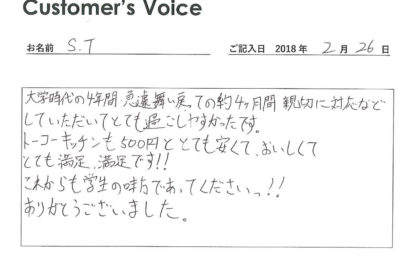 Customer's Voice
お名前 S.T ご記入日 2018年 2月 26日
大学時代の4年間、急遽舞い戻っての約4ヶ月間 親切に対応など
していただいてとても過ごしやすかったです。
トーコーキッチンも500円ととても安くて、おいしくて
とても満足、満足です!!
これからも学生の味方であってくださいっ!!
ありがとうございました。